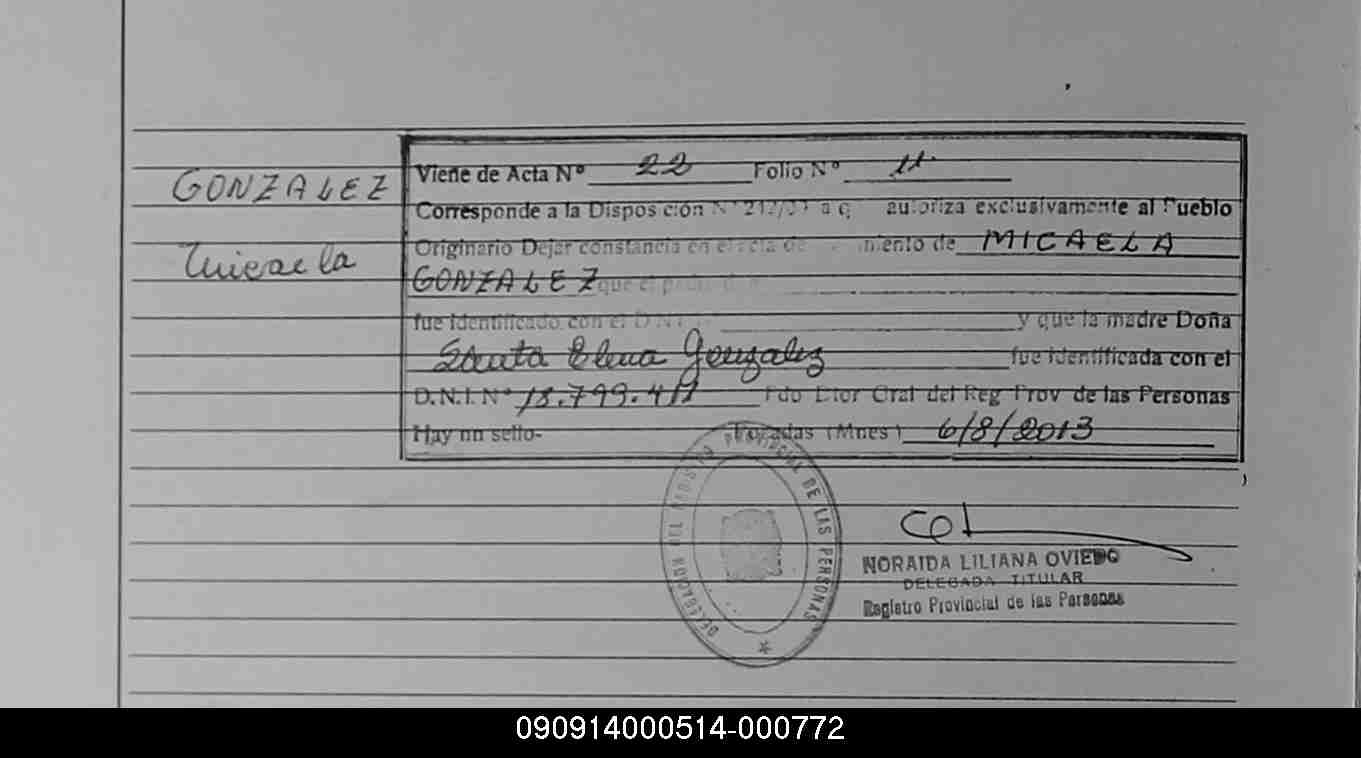 GONZALEZ
Micaela
Viene de Acta Nº 22 Folio Nº 11.
Corresponde a la Disposición Nº 212/ a q autoriza exclusivamente al Pueblo
Originario Dejar constancia en el acta de miento de MICAELA
GONZALEZ que el padre
fue identificado con el D.N.I. y que la madre Doña
Santa Elena Gonzalez fue identificada con el
D.N.I. Nº 18.799.411 Fdo Dtor Gral del Reg Prov de las Personas
Hay un sello- Posadas (Mnes) 6/8/2013
DELEGACION DEL REGISTRO PROVINCIAL DE LAS PERSONAS
NORAIDA LILIANA OVIEDO
DELEGADA TITULAR
Registro Provincial de las Personas
090914000514-000772